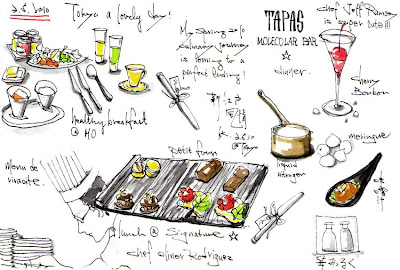 2.6.2010
Tokyo a lovely day!
My Spring 2010
culinary journey
is coming to a
perfect ending!
TAPAS
MOLECULAR BAR
dinner.
chef Jeff Ramsey
is super cute!!!
healthy breakfast
@ MO
2.6.10
@ Tokyo
Petit four
liquid
nitrogen
meringue
Menu de
vivacite.
lunch @ Signature
chef Oliver Rodriguez